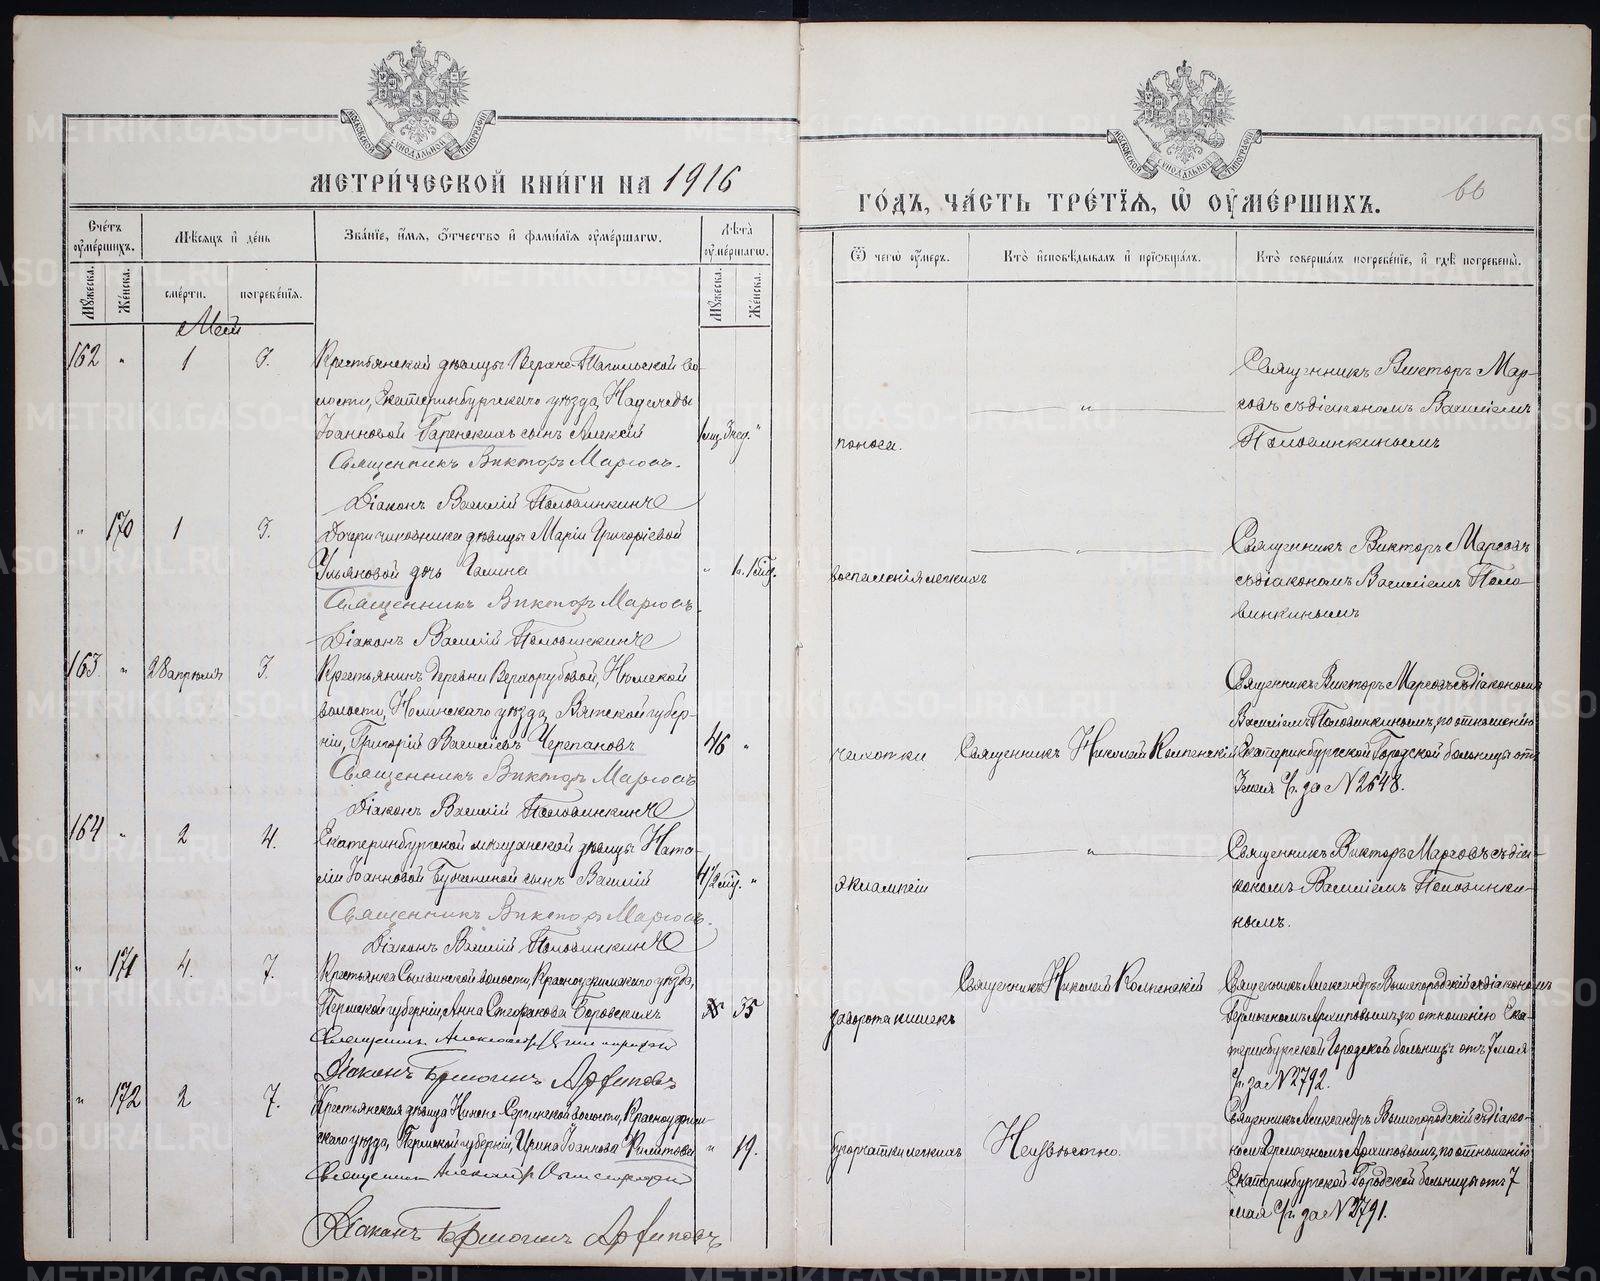 МЕТРИ́ЧЕСКОЙ КНИ́ГИ НА 1916
ГО́ДЪ, ЧА́СТЬ ТРЕ́ТЇѦ, Ѡ҆ ОУ҆МЕ́РШИХЪ.
Сче́тъ оу҆ме́ршихъ.
Мѣ́сѧцъ и҆ де́нь
Зва́нїе, и҆́мѧ, ѻ҆́тчество и҆ фами́лїѧ оу҆ме́ршагѡ.
Лѣ́та оу҆ме́ршагѡ.
Мꙋ́жеска.
Же́нска.
сме́рти.
погребе́нїѧ.
Мꙋ́жеска.
Же́нска.
Ѿ чегѡ̀ оу҆́меръ.
Кто̀ и҆сповѣ́дывалъ и҆ прїѡбща́лъ.
Кто̀ соверша́лъ погребе́нїе, и҆ гдѣ̀ погребены̀.
Май
162 " 1 3.
Крестьянской дѣвицы Верхне-Тагильской во-
лости, Екатеринбургскаго уѣзда, Надежды
Іоанновой Гаренскихъ сынъ Алексій
1 мѣс. 3 нед. "
Священникъ Викторъ Марковъ.
Діаконъ Василій Половинкинъ
поноса.
"
Священникъ Викторъ Мар-
ковъ съ діакономъ Василіемъ
Половинкинымъ
" 170 1 3.
Дочери чиновника дѣвицы Маріи Григоріевой
Ульяновой дочь Галина
" 1 г. 1 мѣс.
Священникъ Викторъ Марковъ.
Діаконъ Василій Половинкинъ
воспаленія легкихъ
"
Священникъ Викторъ Марковъ
съ діакономъ Василіемъ Поло-
винкинымъ
163. " 28 апрѣля 3.
Крестьянинъ деревни Верхорубовой,
волости, Нолинскаго уѣзда, Вятской губер-
ніи, Григорій Василіевъ Черепановъ
46 "
Священникъ Викторъ Марковъ
Діаконъ Василій Половинкинъ
чахотки
Священникъ Николай
Священникъ Викторъ Марковъ съ діакономъ
Василіемъ Половинкинымъ, по отношенію
Екатеринбургской Городской больницы отъ
3 мая с/г. за № 2648.
164 " 2 4.
Екатеринбургской мѣщанской дѣвицы Ната-
ліи Іоанновой сынъ Василій
4 1/2 мѣс. "
Священникъ Викторъ Марковъ.
Діаконъ Василій Половинкинъ
эклампсіи
"
Священникъ Викторъ Марковъ съ діа-
кономъ Василіемъ Половинки-
нымъ.
" 171 4. 7.
Крестьянка волости, Красноуфимскаго уѣзда,
Пермской губерніи Анна Стефанова Боровскихъ
35
Священникъ Александръ Вышегородскій
Діаконъ Ермогенъ Архиповъ
заворота кишекъ
Священникъ Николай
Священникъ Александръ Вышегородскій съ діакономъ
Ермогеномъ Архиповымъ, по отношенію Ека-
теринбургской Городской больницы отъ 7 мая
с/г. за № 2792.
" 172 2 7.
Крестьянская дѣвица Нижне-Сергинской волости, Красноуфим-
скаго уѣзда, Пермской губерніи, Ирина Иванова Филатова
" 19.
Священникъ Александръ Вышегородскій
Діаконъ Ермогенъ Архиповъ
бугорчатки легкихъ
Неизвѣстно.
Священникъ Александръ Вышегородскій съ діако-
номъ Ермогеномъ Архиповымъ, по отношенію
Екатеринбургской Городской больницы отъ 7
мая с/г. за № 2791.